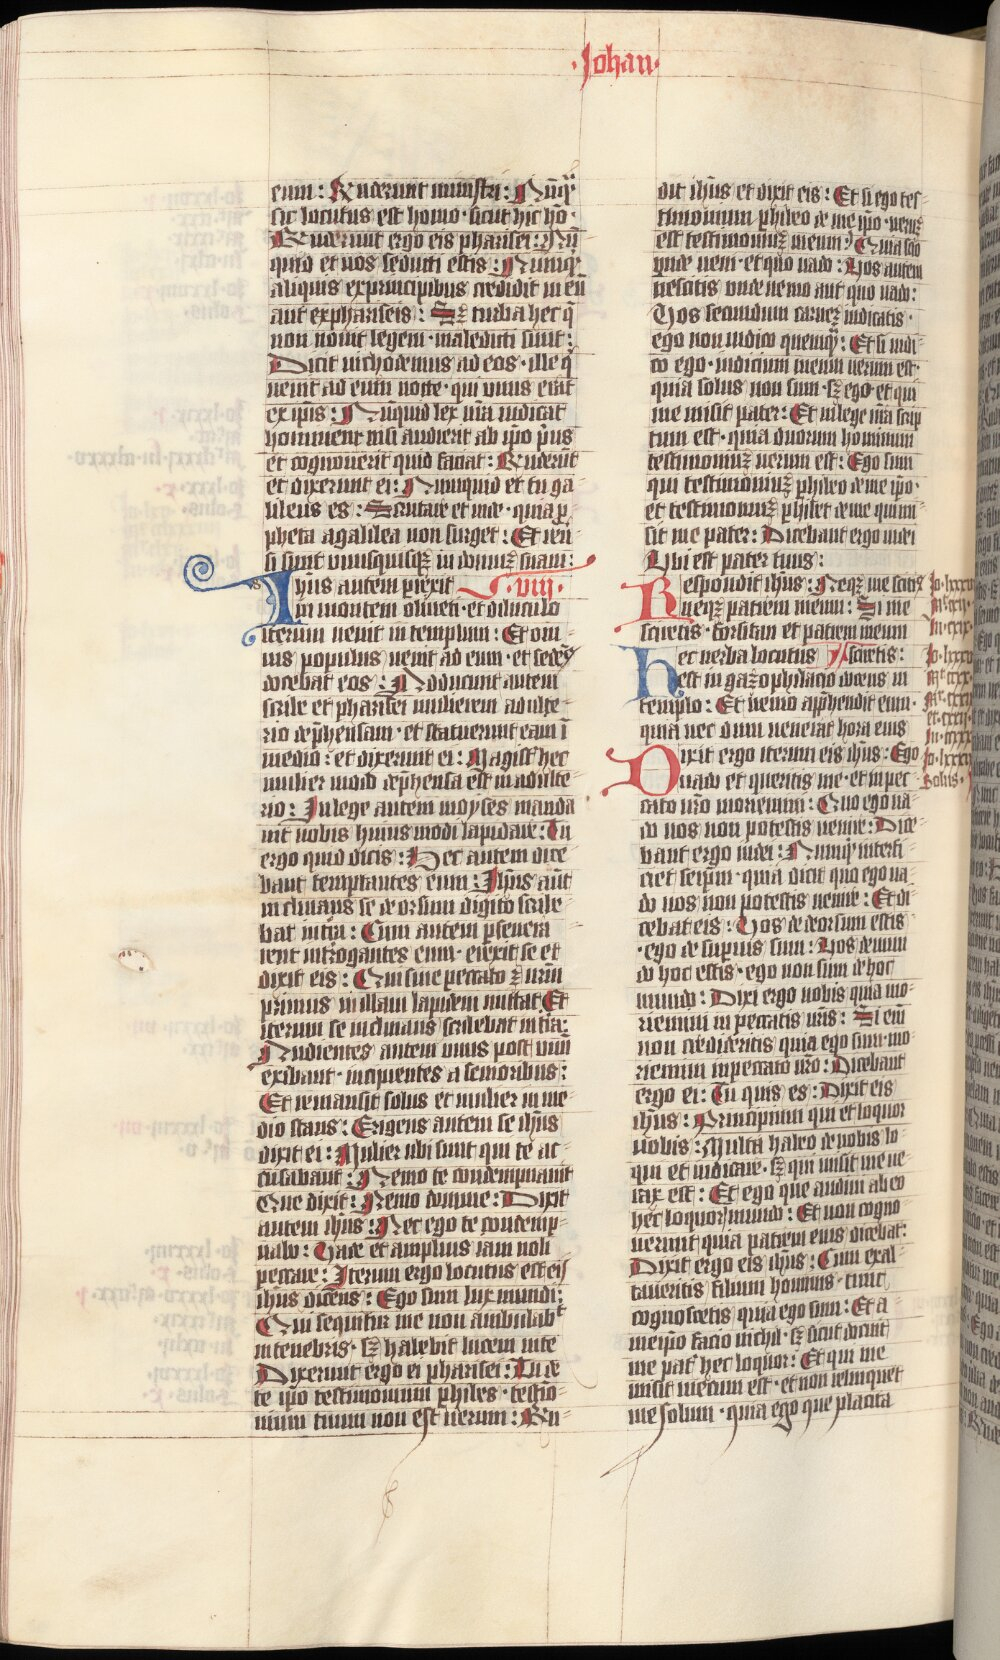 ·Johan·
eum: Rnderunt ministri: Nūqͣ
sic locutus est homo· sicut hic hō·
Rnderunt ergo eis pharisei: Nū
quid et vos seducti estis: Nūnqͣ
aliquis exprincipibus credidit in eū
aut exphariseis: Sꝫ turba hec q̄
non novit legem· maledicti sunt:
Dicit nichodemus ad eos· ille q̄
venit ad eum nocte· qui unus erat
ex ip̄is: Nūnquid lex nr̄a iudicat
hominem nisi audierit ab ip̄o prius
et cognoverit quid faciat: Rnderūt
et dixerunt ei: Nunquid et tu ga⸗
lileus es: Scrutare et vide· quia p̱
pheta agalilea non surget: Et rev̄
si sunt unusquisqꝫ in domuꝫ suam:
Ihūs autem perexit ·viij·
in montem oliveti· et diluculo
iterum venit in templum: Et om̄⸗
nis populus venit ad eum· et sedēs
docebat eos: Adducunt autem
scribe et pharisei mulierem adulte⸗
rio dep̄hensam· et statuerunt eam ī
medio: et dixerunt ei: Magist̄ hec
mulier modo dep̄hensa est in adulte
rio: In lege autem moyses manda
vit nobis huius modi lapidare: Tu
ergo quid dicis: Hec autem dice⸗
bant temptantes eum: Ihūs aūt
inclinans se deorsum digito scribe
bat in tr̄a: Cum autem p̱severa
rent int̄rogantes eum· erexit se et
dixit eis: Qui sine peccato ē vr̄m
primus in illam lapidem mittat Et
iterum se inclinans scribebat in tr̄a:
Audientes autem unus post unū
exibant· incipientes a senioribus:
Et remansit solus et mulier in me⸗
dio stans: Erigens autem se ih̄us
dixit ei: Mulier ubi sunt qui te ac⸗
cusabant: Nemo te condempnavit
Que dixit: Nemo domine: Dixit
autem ih̄us: Nec ego te condemp⸗
nabo: Vade et amplius iam noli
peccare: Iterum ergo locutus est eis
ih̄us dicens: Ego sum lux mundi:
Qui sequitur me non ambulabᵗ
in tenebris· sꝫ habebit lucem vite
Dixerunt ergo ei pharisei: Tu de
te ip̄o testimonium p̱hibes· testio⸗
nium tuum non est verum: Rn⸗
dit ih̄us et dixit eis: Et si ego tes⸗
timonium p̱hibeo de me ip̄o· veruꝫ
est testimoniuꝫ meum: Quia scio
unde veni· et quo vado: Vos autem
nescitis unde venio aut quo vado:
Vos secundum carneꝫ iudicatis·
ego non iudico quemqͣ: Et si iudi⸗
co ego· iudicium meum verum est·
quia solus non sum· sꝫ ego et qui
me misit pater: Et in lege vr̄a scrip
tum est· quia duorum hominum
testimoniuꝫ verum est: Ego sum
qui testimoniuꝫ p̱hibeo de me ip̄o·
et testimoniuꝫ p̱hibet de me qui mi⸗
sit me pater: Dicebant ergo iudei
Ubi est pater tuus:
Respondit ih̄us: Neqꝫ me scitis
neqꝫ patrem meum: Si me
sciretis· forsitan et patrem meum
Hec verba locutus sciretis:
est in gazophilacio docens in
templo: Et nemo app̄hendit eum·
quia nec dum venerat hora eius
Dixit ergo iterum eis ih̄us: Ego
vado et queritis me· et in pec⸗
cato vr̄o moriemini: Quo ego va⸗
do vos non potestis venire: Dice⸗
bant ergo iudei: Nunqͣ interfi⸗
ciet seip̄m· quia dicit quo ego va⸗
do vos non potestis venire: Et di⸗
cebat eis: Vos de deorsum estis
·ego de supernis sum: Vos de mun⸗
do hoc estis· ego non sum de hoc
mundo: Dixi ergo vobis quia mo⸗
riemini in peccatis vr̄is: Si em̄
non credideritis quia ego sum· mo⸗
riemini in peccato vr̄o: Dicebant
ergo ei: Tu quis es: Dixit eis
ih̄us: Principium qui et loquor
vobis: Multa habeo de vobis lo⸗
qui et iudicare· sꝫ qui misit me ve⸗
rax est: Et ego que audivi ab eo
hec loquor in mundo: Et non cogno⸗
verunt quia patrem eius dicebat:
Dixit ergo eis ih̄us: Cum exal⸗
taveritis filium hominis· tunc
cognoscetis quia ego sum: Et a
meip̄o facio nichil· sꝫ sicut docuit
me pat̄ hec loquor: Et qui me
misit mecum est· et non relinquet
me solum· quia ego que placita